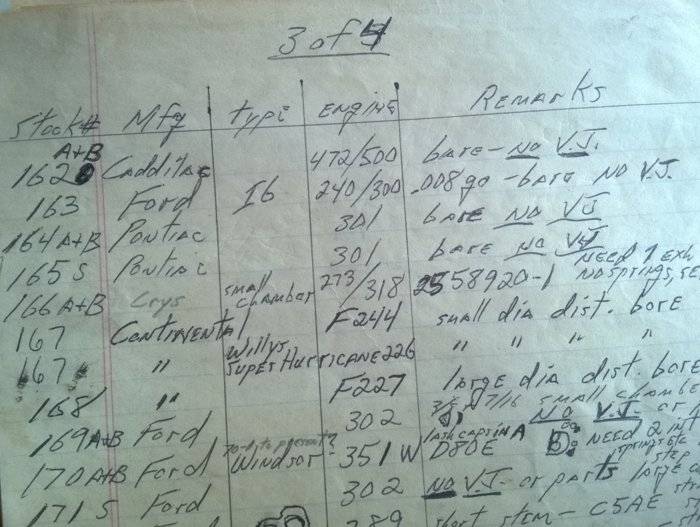 3 of 4
Stock# Mfg type ENGINE REMARKS
162 A+B Caddilac 472/500 bare - NO V.J.
163 Ford I6 240/300 .008 go - bare NO V.J.
164 A+B Pontiac 301 bare NO VJ
165 S Pontiac 301 bare NO VJ NEED 1 exh
166 A+B Crys small chamber 273/318 2558920-1 NO springs,
167 Continental F244 small dia dist. bore
167 " Willys Super Hurricane 226 " " " "
168 " F227 large dia dist. bore
169 A+B Ford 302 7/16 small chamber NO V.J. or
170 A+B Ford Windsor 351 W D80E B: NEED 2 int
171 S Ford 302 NO V.J. or parts large
289 short stem - C5AE